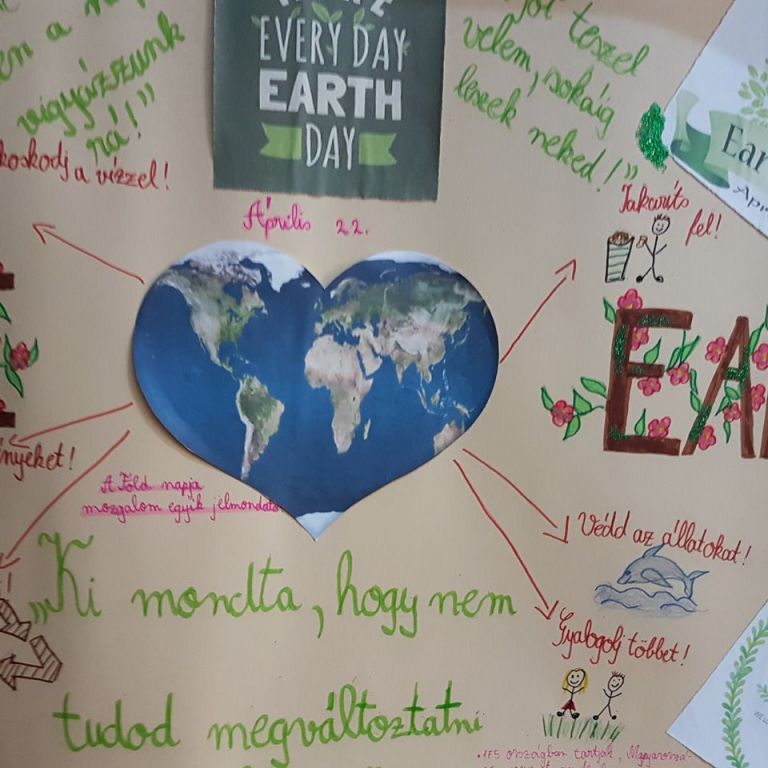 en a
vigyázzunk
rá!"
koskodj a vízzel!
EVERY DAY
EARTH
DAY
Április 22.
jót teszel
velem, sokáig
leszek neked!"
Ear
Apr
Takaríts
fel!
EA
nyeket!
A Föld napja
mozgalom egyik jelmondata
Védd az állatokat!
„Ki mondta, hogy nem
Gyalogolj többet!
tudod megváltoztatni
.175 országban tartják, Magyarorszá-